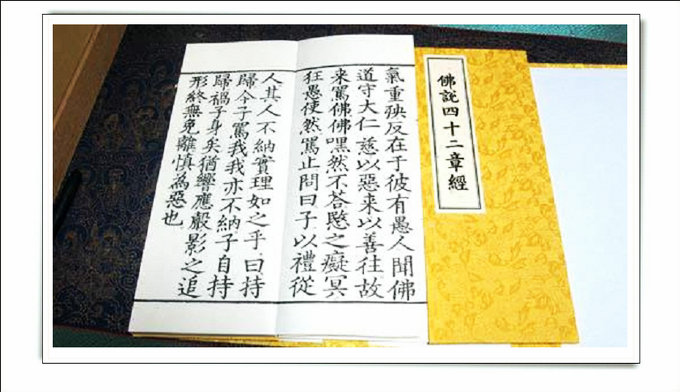 佛說四十二章經
氣重殃反在于彼有愚人聞佛
道守大仁慈以惡來以善往故
來罵佛佛嘿然不荅愍之癡冥
狂愚使然罵止問曰子以禮從
人其人不納實理如之乎曰持
歸今子罵我我亦不納子自持
歸禍子身矣猶響應聲影之追
形終無免離慎為惡也